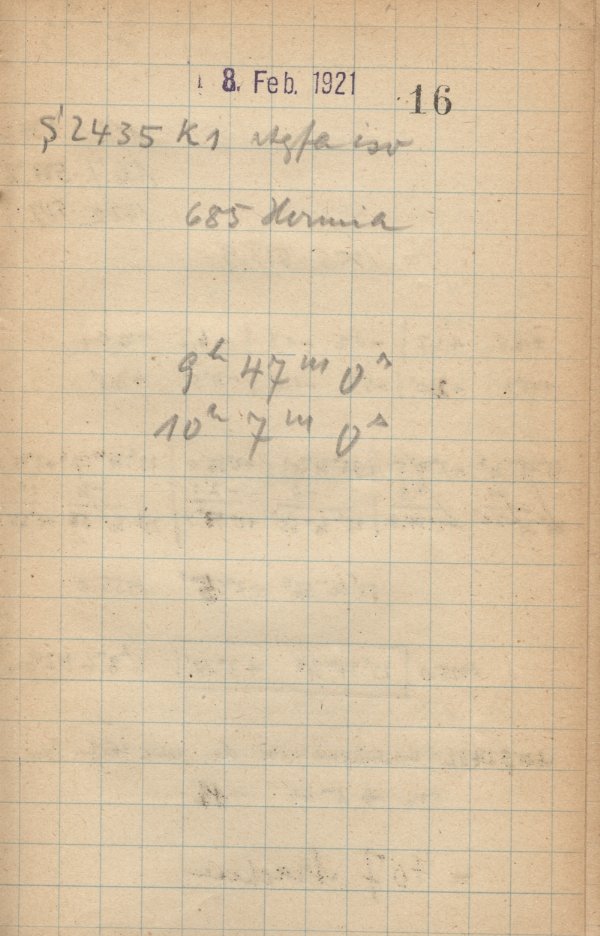 8. Feb. 1921
16
2435 K1 Agfa iso
685 Hermia
9h 47m 0s
10h 7m 0s